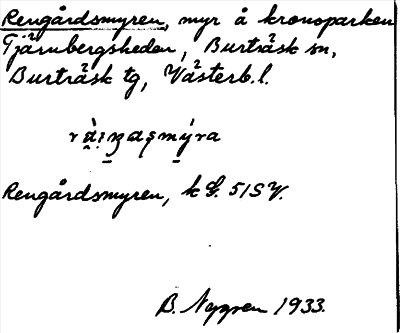 Rengårdsmyren, myr å kronoparken
Tjärnbergsheden, Burträsk sn,
Burträsk tg, Västerb. l.
Rengårdsmyren, k G. 51 S V.
B. Nygren 1933.